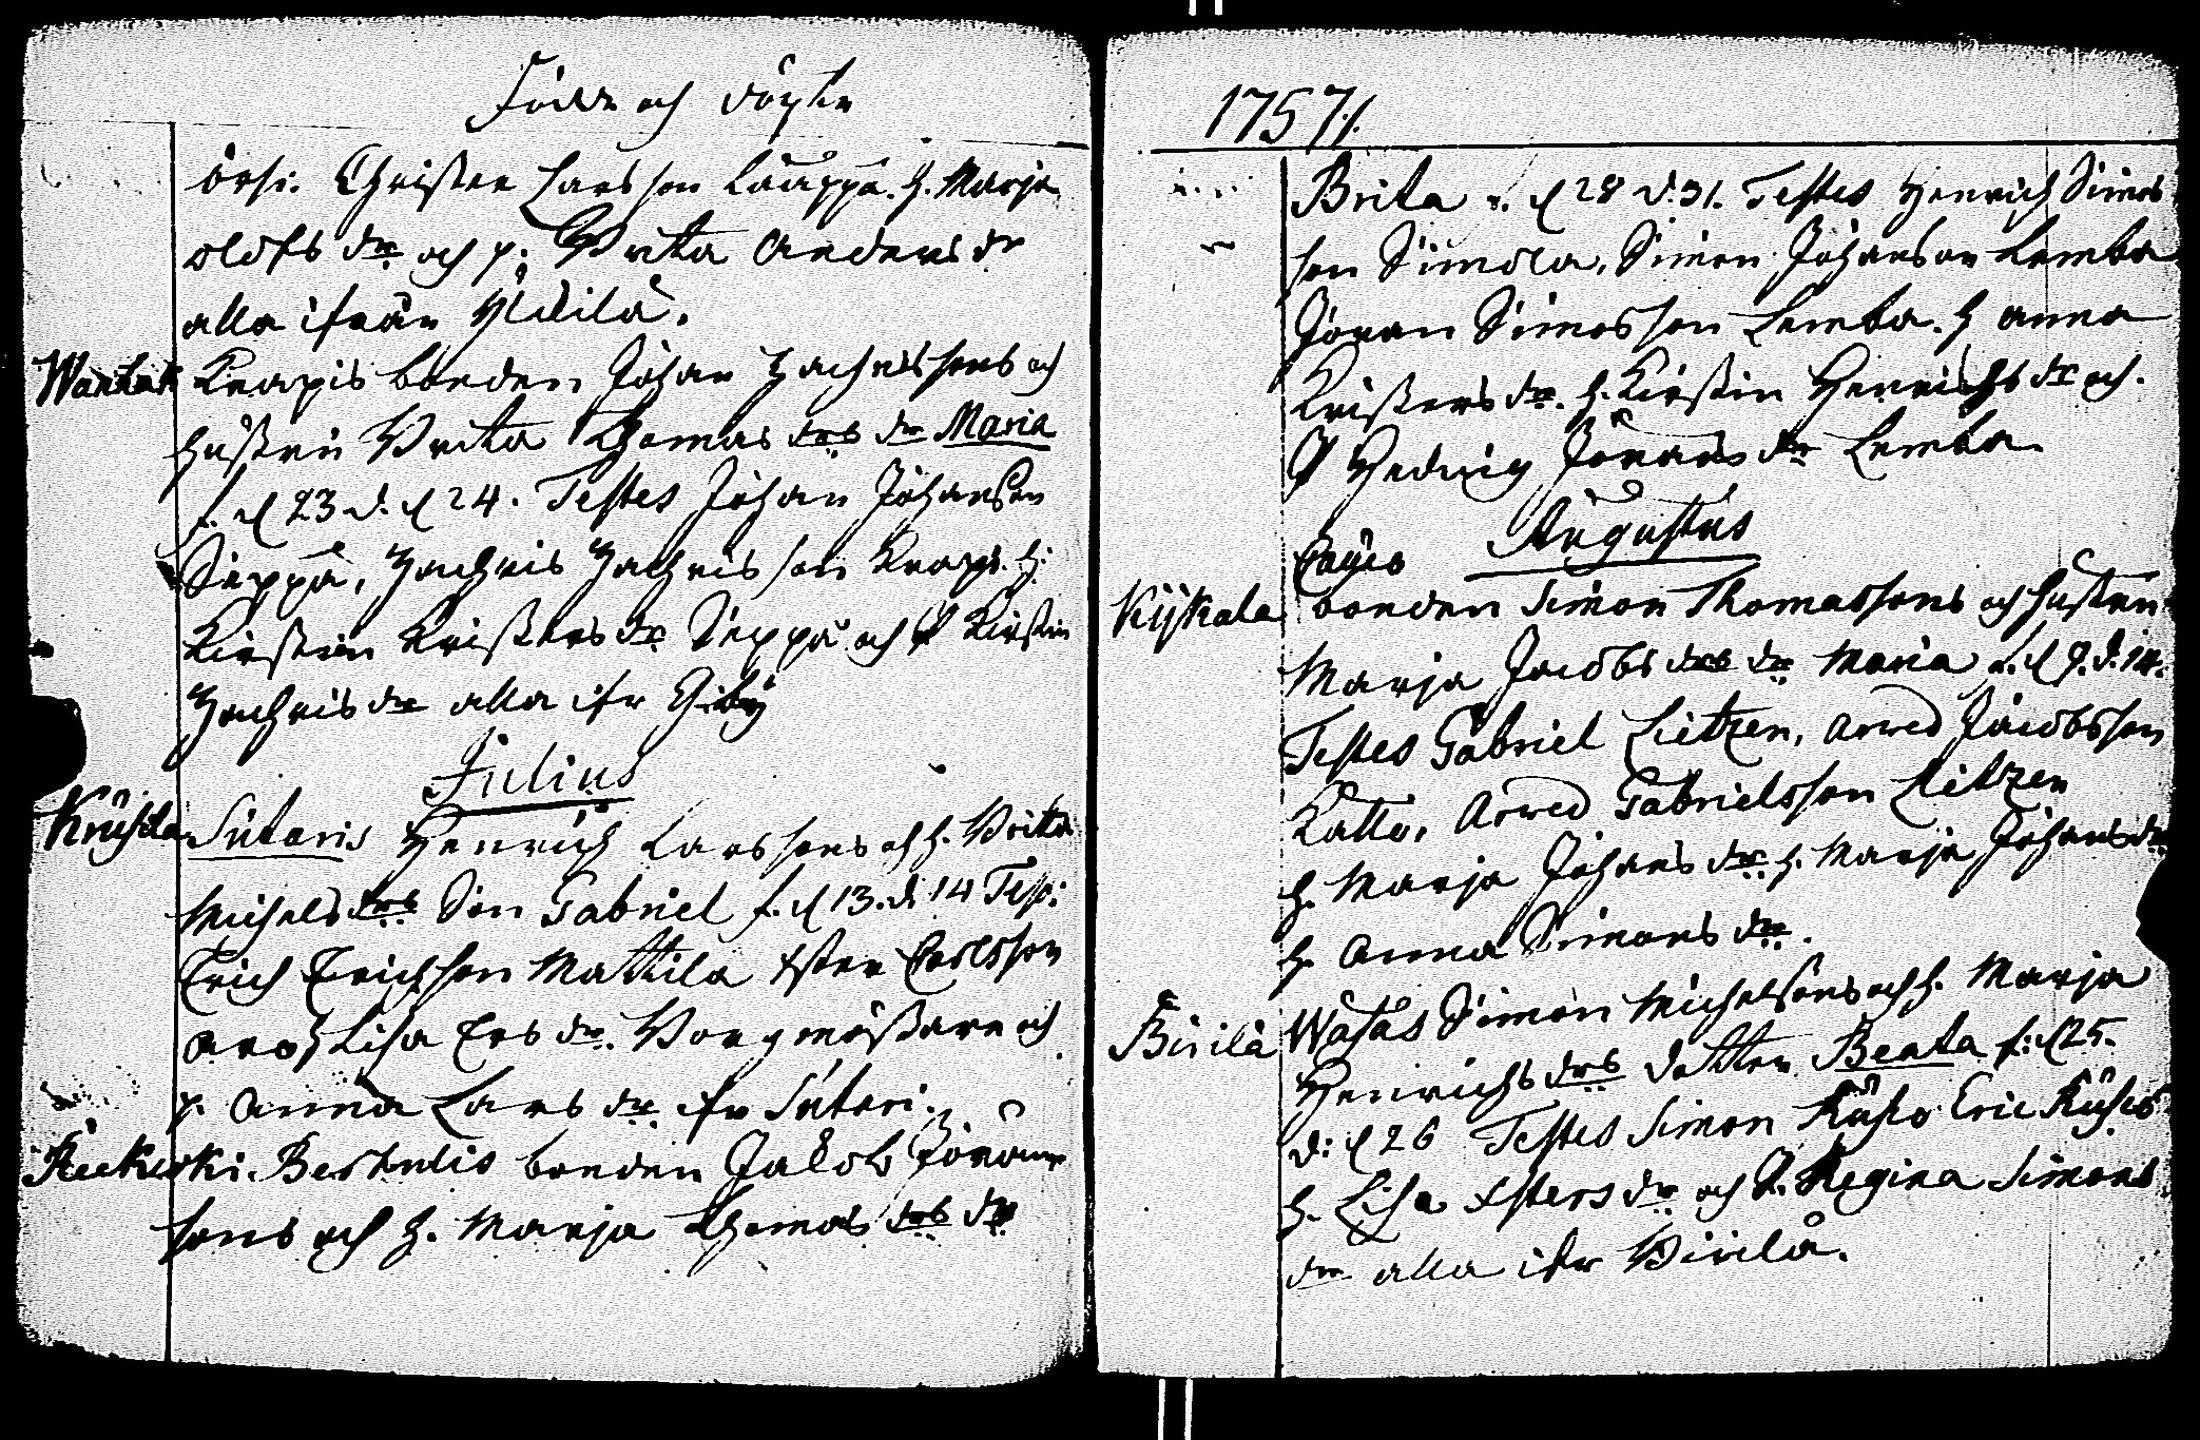 Födde och döpte
örsi. Christer Larsson Lauppa. h. Marja
olofs dr och p: Brita Anders dr
alla ifrån Ylikila.
Wanhak Knapis bonden Johan Zachrissons och
hustru Brita Thomas drs dr Maria
f. d 23 d. d 24. Testes Johan Johansson
Seppä, Zachris Zachrisson Knapi. h.
Kirstin Kristers dr Seppä och P Kirstin
Zachris dr alla ifr
Julius
Sutaris Henrich Larssons och h. Brita
Michels drs Son Gabriel f. d 13. d. 14 Test:
Erich Erichson Mattila Carlsson
Aro, Lisa Ers dr. och
p. Anna Lars dr ifr Sutari.
Bertulis bonden Jacob Jörans
sons och h. Marja Thomas drs dr
1757/.
Brita f. d 28 d. 31. Testes Henrich Simos
son Simola, Simon Johansson Lemba
Jöran Simosson Lemba. h Anna
Kristers dr. h. Kirstin Henrichs dr och.
P Hedvig Jörans dr Lemba.
Augustus
Kijkala bonden Simon Thomassons och hustrun
Marja Jacobs drs dr Maria f. d 9. d. 14.
Testes Gabriel Lietzen, Arved Jacobsson
Katto, Arved Gabrielsson Lietzen
h. Marja Johans dr h. Marja Johans dr
h. Anna Simons dr.
Birilä Simon Michelsons och h. Marja
Henrichs drs dotter Beata f: d 25.
d: d 26 Testes Simon Eric
h. Lisa Esters dr och P. Regina Simons
dr alla ifr Birilä.